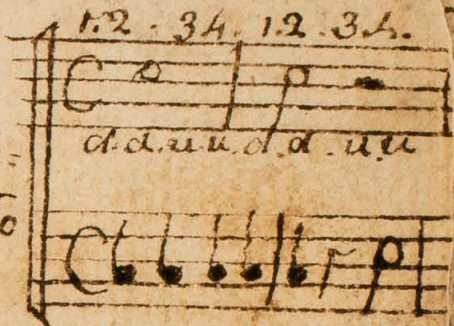 1. 2 . 3 4. 1. 2. 3. 4.
d. d. u u. d. d. u. u